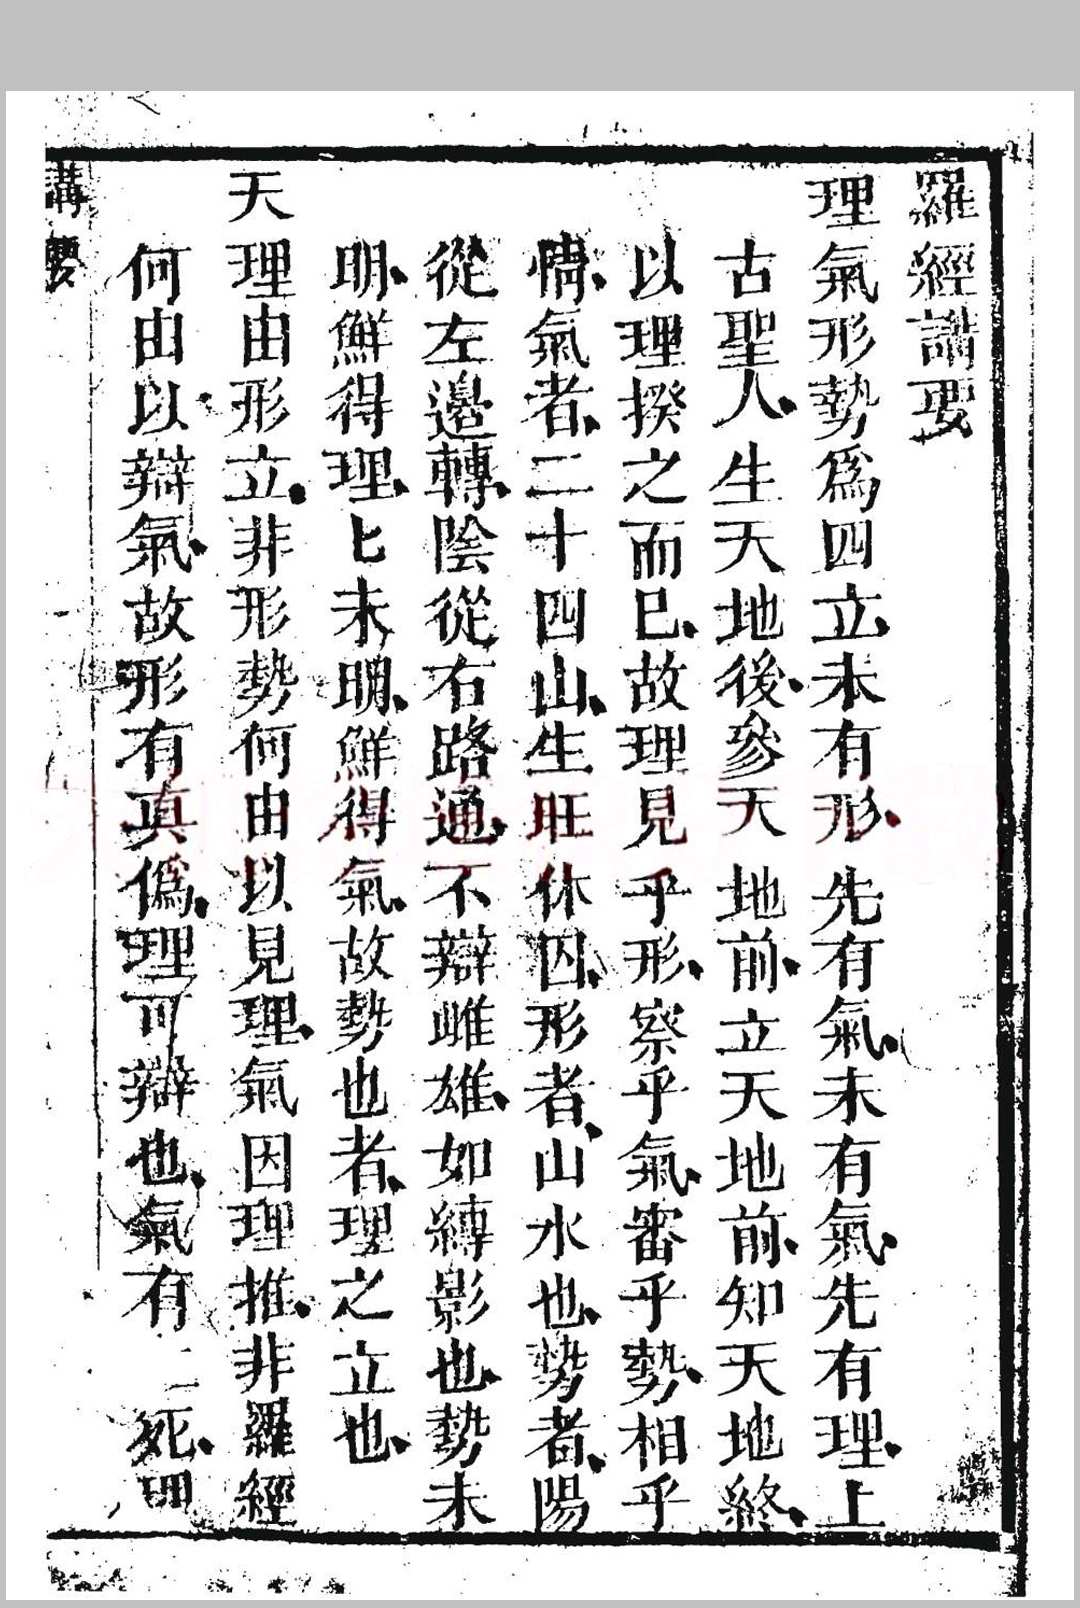 羅經講要
理氣形勢爲四立、未有形、先有氣、未有氣、先有理、上
古聖人、生天地後、參天地前、立天地前、知天地終、
以理揆之而已、故理見乎形、察乎氣、審乎勢、相乎
情、氣者、二十四山、生旺休囚、形者、山水也、勢者、陽
從左邊轉、陰從右路通、不辯雌雄、如縛影也、勢未
明、鮮得理、匕未明、鮮得氣、故勢也者、理之立也、
天理由形立、非形勢何由以見理、氣因理推、非羅經
何由以辯氣、故形有真僞、理可辯也、氣有死、
講要